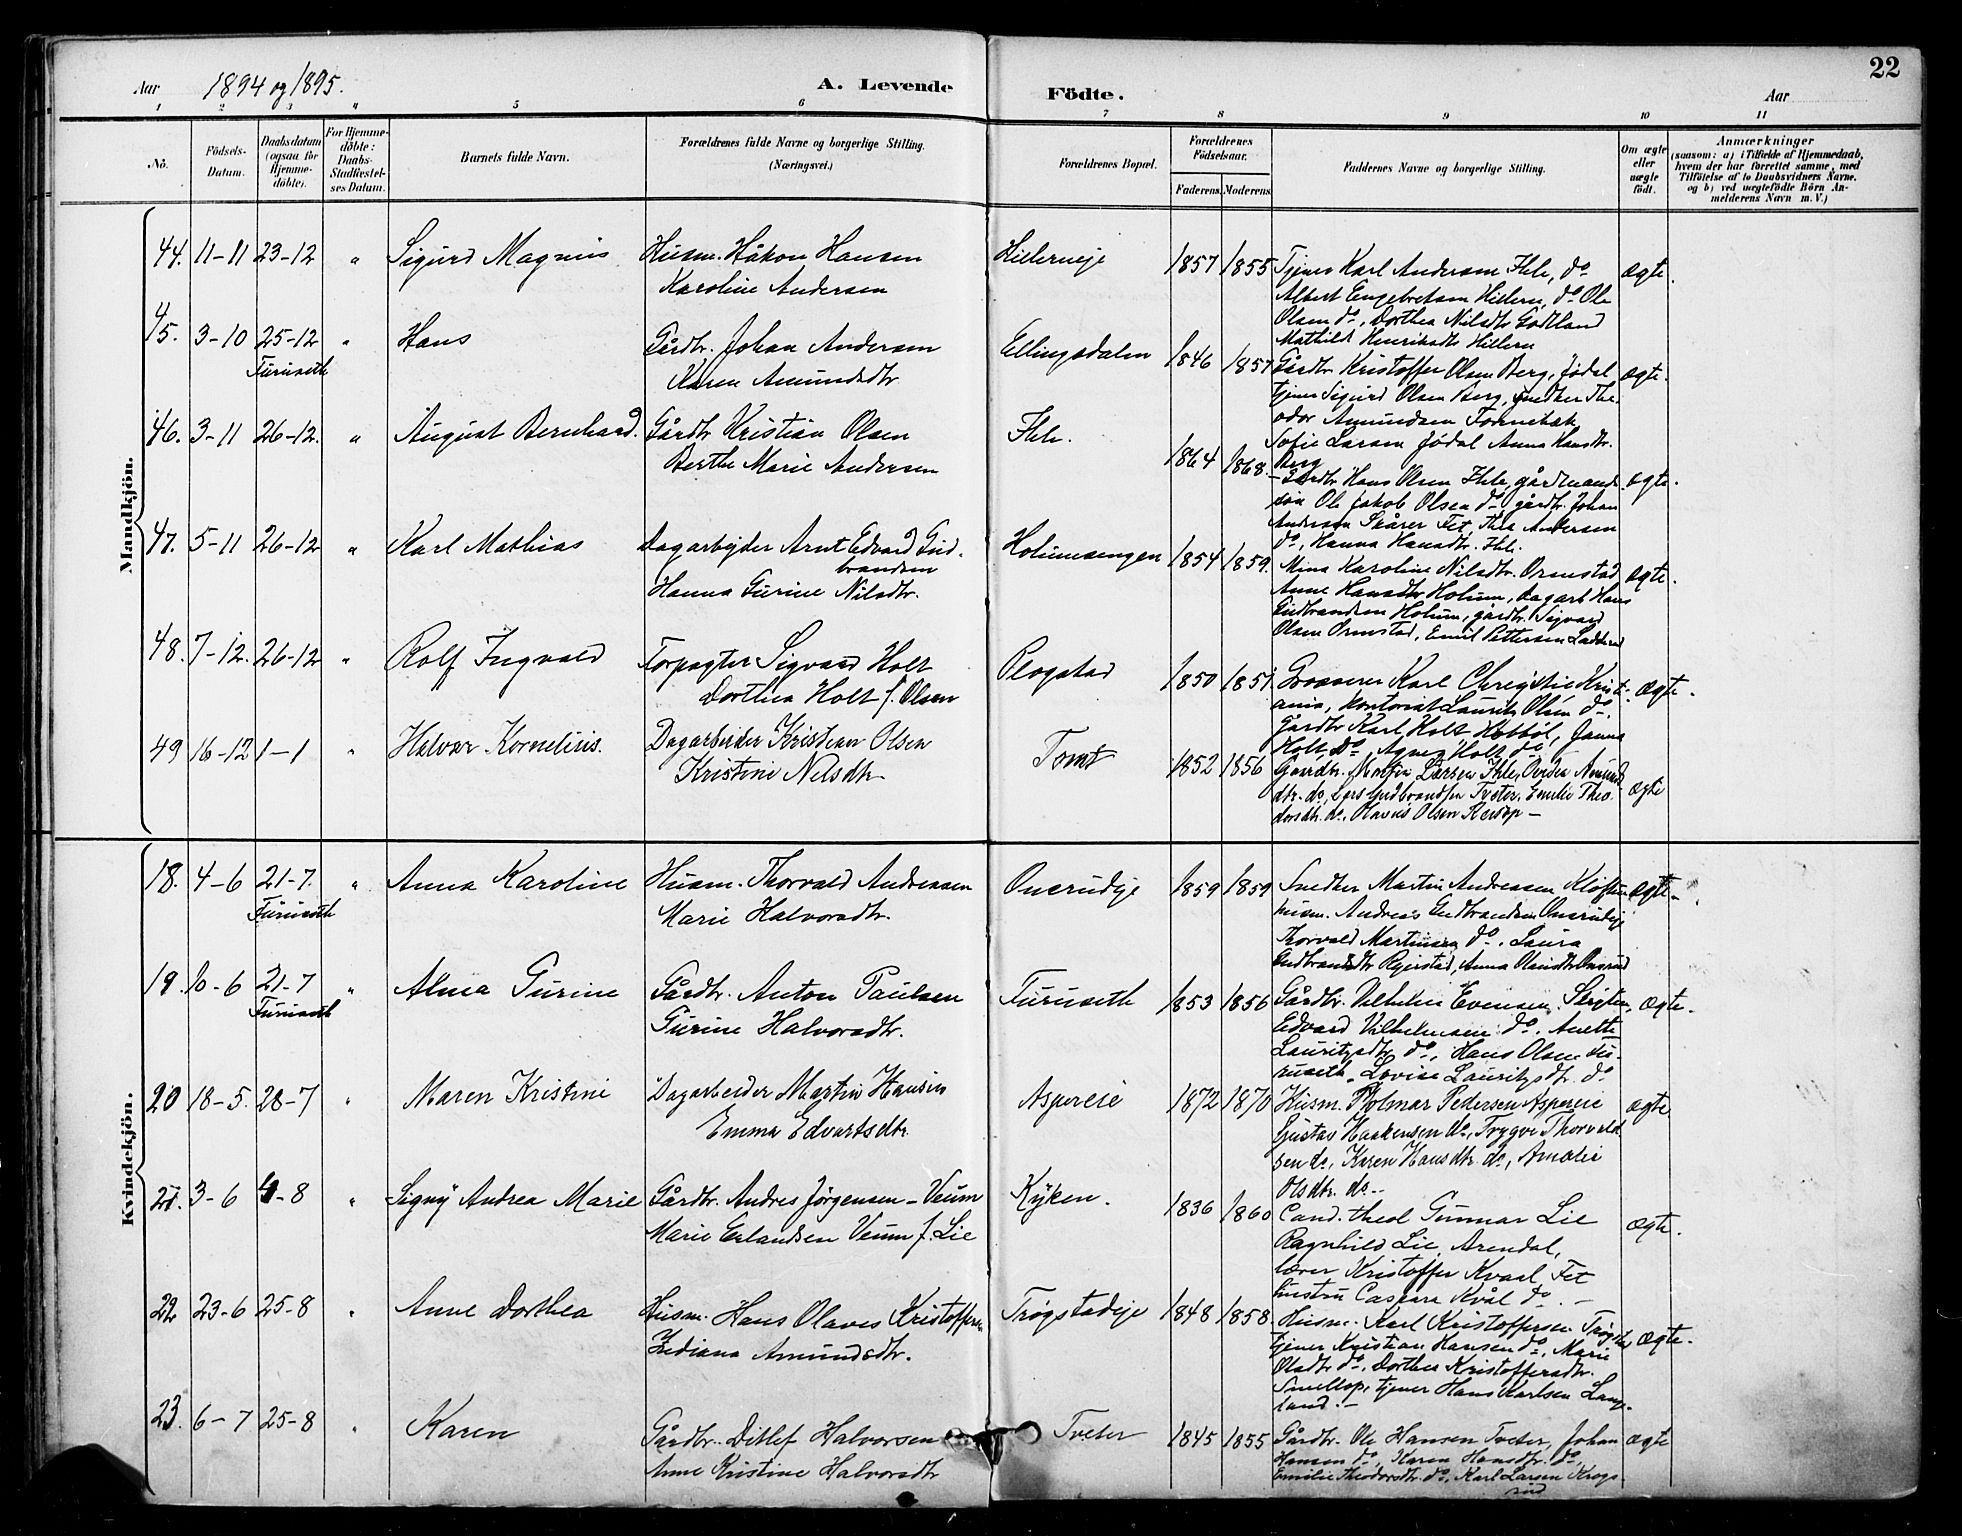 22
Aar 1894 og 1895.
A. Levende Födte.
Aar
1 2 3 4 5 6 7 8 9 10 11
No.
Födsels-Datum.
Daabsdatum (ogsaa for Hjemme-döbte).
For Hjemme-döbte: Daabs-Stadfæstel-ses Datum.
Barnets fulde Navn.
Forældrenes fulde Navne og borgerlige Stilling. (Næringsvei.)
Forældrenes Bopæl.
Forældrenes Födselsaar.
Faderens. Moderens.
Faddernes Navne og borgerlige Stilling.
Om ægte eller uægte født.
Anmærkninger
(saasom: a) i Tilfælde af Hjemmedaab, hvem der har forrettet samme, med Tilföielse af to Daabsvidners Navne. og b) ved uægtefödte Börn An-melderens Navn m. V.)
Mandkjön.
44. 11-11 23-12 " Sigurd Magnus
Husm. Håkon Hansen
Karoline Andersen
Hilleneje 1857 1855
Tjener Karl Andersen Ihle, do
Albert Engebretsen Hillern, do Ole
Olsen do, Dorthea Nilsdtr Godtland
Mathilde Henriksdtr Hillern
ægte.
45. 3-10 25-12 " Hans
Furuseth
Gårdbr. Johan Andersen
Karen Amundsdtr
Ellingsdalen 1846 1857
Gårdbr Kristoffer Olsen Berg, Jødal
tjener Sigurd Olsen Berg, snedker The-
odor Amundsen Fornebak
Sofie Larsen Jødal Anna Hansdtr.
Berg
ægte.
46. 3-11 26-12. " August Bernhard.
Gårdbr Kristian Olsen
Berthe Marie Andersen
Ihle. 1864 1868.
Gårdbr Hans Olsen Ihle, gårdmands-
søn Ole Jakob Olsen do gårdbr. Johan
Andersen Skårer Fet, Thea Andersen
do, Hanna Hansdtr. Ihle.
ægte.
47. 5-11 26-12 " Karl Mathias
Dagarbejder Arnt Edvard Gud-
brandsen
Hanna Gurine Nilsdtr.
Holumsengen 1854 1859.
Mina Karoline Nilsdtr. Ormstad
Anne Hansdtr Holum, dagarb Hans
Gudbrandsen Holum, gårdbr. Sigvard
Olsen Ormstad, Emil Pettersen
ægte.
48. 7-12. 26-12 " Rolf Ingvald
Forpagter Sigvard Holt
Dorthea Holt f. Olsen
Plogstad 1850 1851
Grosserer Karl Christie Krist-
ania, kontorist Laurits Olsen do.
Gårdbr Karl Holt Hobbøl, Janna
Holt, do, Agnes Holt do.
ægte.
49 16-12 1-1 " Halvor Kornelius.
Dagarbeider Kristian Olsen
Kristine Nilsdtr
Tomt 1852 1856
Gaardbr. Martin Larsen Ihle, Amund
dtr. do, Lars Gudbrandsen Tveter, Emilie Theo-
dorsdtr. do, Olavus Olsen
ægte
Kvindekjön.
18. 4-6 21-7. " Anna Karoline
Furuseth
Husm. Thorvald Andreassen
Marie Halvorsdtr.
Onsrudeje 1859 1859
Snedker Martin Andreasen Kløften
husm. Andreas Gudbrandsen Onsrudeje
Thorvald Martinsen do. Laura
Gudbrandsdtr Rejerstad, Anna Olausdtr Onsrud
ægte.
19. 10-6 21-7 " Alma Gurine
Furuseth
Gårdbr. Anton Paulsen
Gurine Halvorsdtr.
Furuseth 1853 1856
Gårdbr. Vilhelm Evensen
Edvard Vilhelmsen do. Anette
Lauritzsdtr do, Hans Olsen Fu-
ruseth, Lovise Lauritzsdtr. do
ægte.
20 18-5. 28-7 " Maren Kristine
Dagarbeider Martin Hansen
Emma Edvartsdtr.
Aspereie 1872 1870
Husm. Holmar Pedersen Aspereie
Gustav Haakensen do, Trygve Thorvald-
sen do, Karen Hansdtr. do, Amalie
Olsdtr. do.-
ægte
21. 3-6 4-8 " Signy Andrea Marie
Gårdbr. Andres Jørgensen - Veum
Marie Erlandsen Veum f. Lie
Kyken. 1836 1860
Cand. theol Gunnar Lie
Ragnhild Lie, Arendal,
lærer Kristoffer Kvaal, Fet
hustru Caspara Kvål do. -
ægte.
22 23-6 25-8 " Anne Dorthea
Husm. Hans Olaves Kristoffersen
Indiana Amundsdtr.
Trøgstadeje 1848 1858
Husm. Karl Kristoffersen Trøgstad
tjener Kristian Hansen do, Marie
Olsdtr do, Dorthea Kristoffersdtr.
Smellop, tjener Hans Karlsen Lang-
land. -
ægte.
23. 6-7 25-8 " Karen
Gårdbr. Ditlef Halvorsen
Anne Kristine Halvorsdtr
Tveter 1845 1855
Gårdbr. Ole Hansen Tveter, Johan
Hansen do, Karen Hansdtr. do,
Emilie Theodorsdtr. do, Karl Larsen Krogs-
rud
ægte